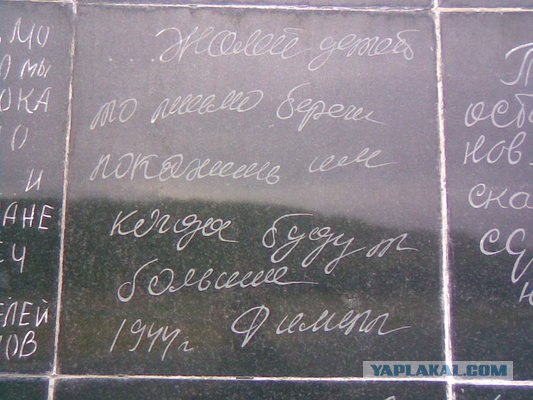 ЬМО
О МЫ
ОКА
О
. И
АНЕ
ЕЧ
ЛЕЙ
ОВ
... Жалей детей
то письмо береги
покажишь им
когда будут
большие
1944г.
П
ост
нов
ска
сд
YAPLAKAL.COM